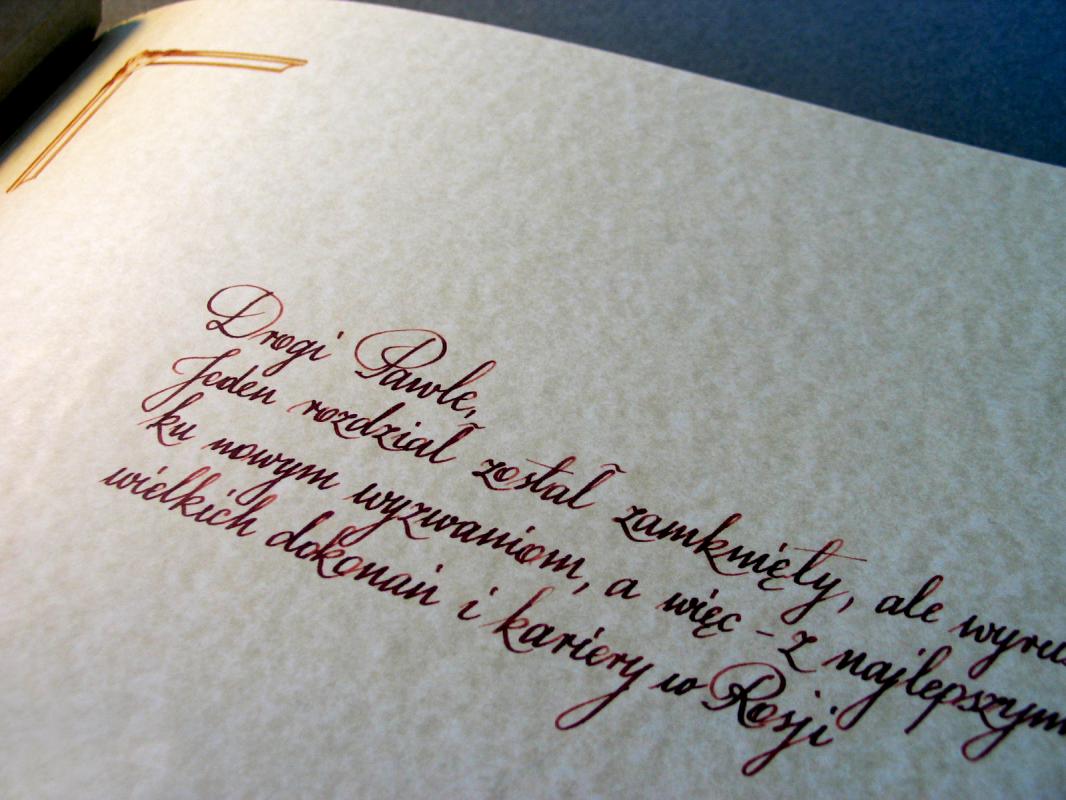 Drogi Pawle,
Jeden rozdział został zamknięty, ale
ku nowym wyzwaniom, a więc - z
wielkich dokonań i kariery w Rosji